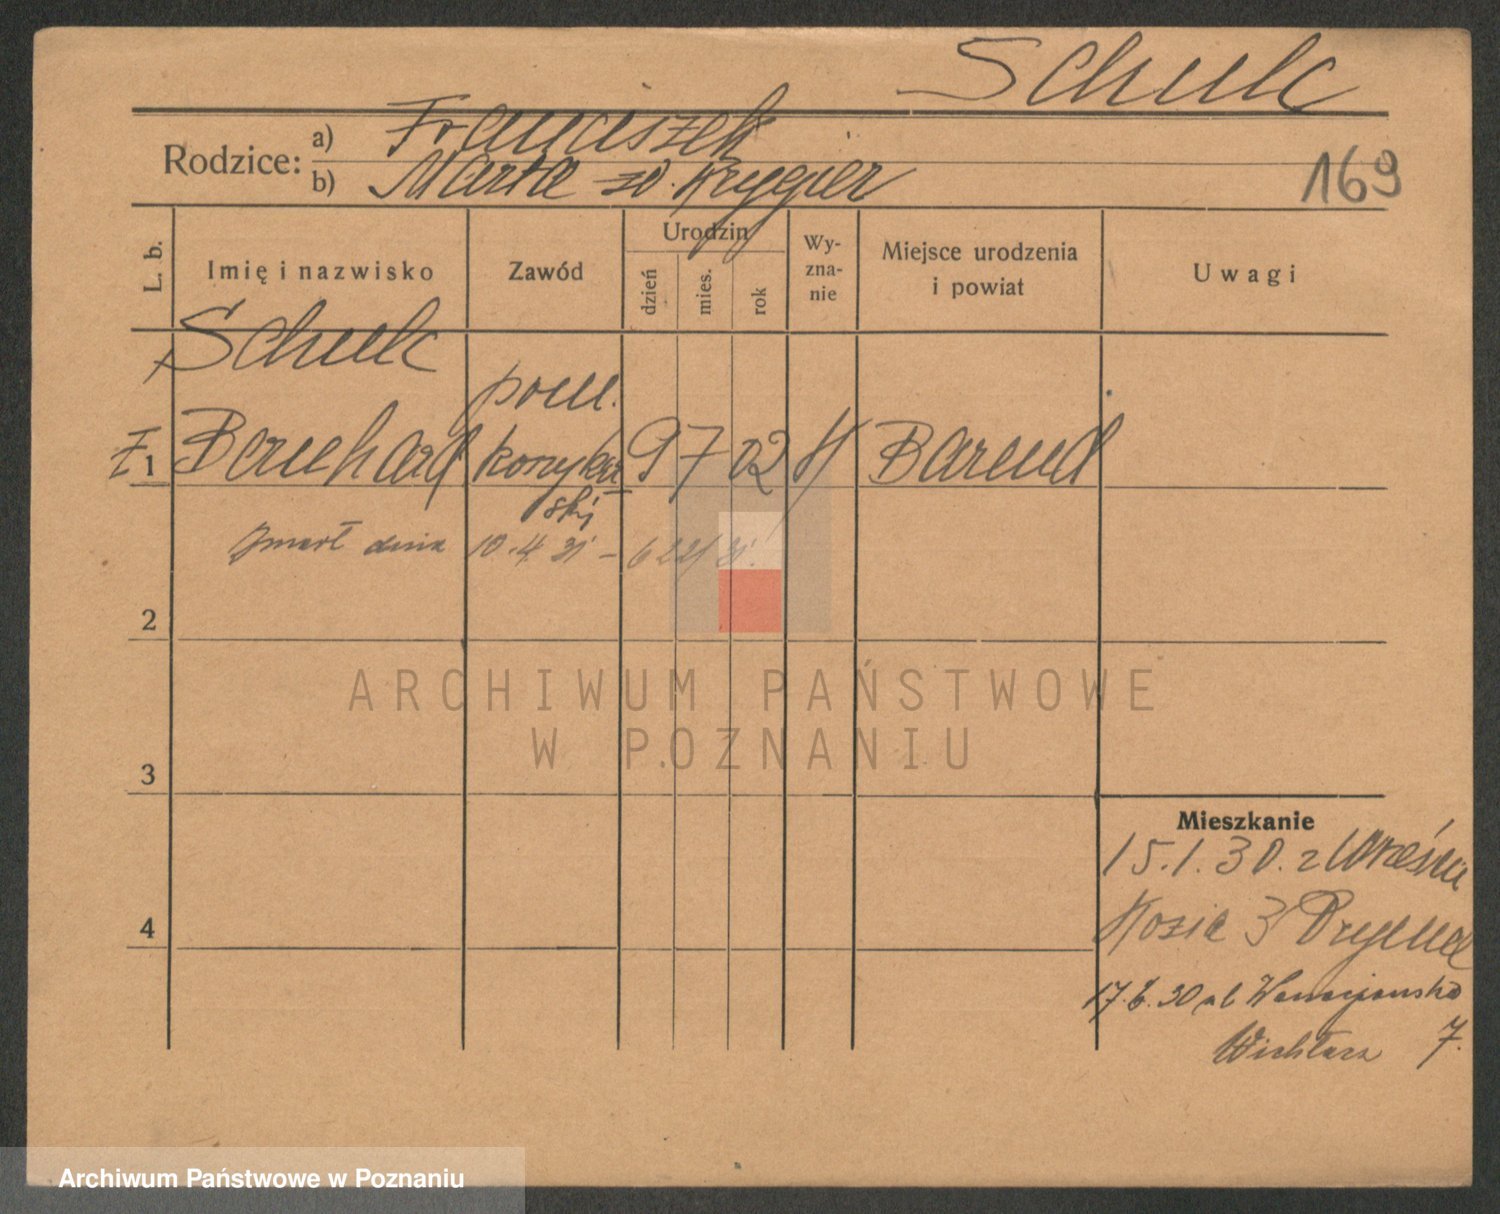 Schulc
Rodzice: a) Franciszek
b) Marta zd. Krygier
169
L. b. Imię i nazwisko Zawód Urodzin dzień mies. rok Wyznanie Miejsce urodzenia i powiat Uwagi
Schulc
pom.
1 Bernhard koszykar 9 7 02 Barend
ski
zmarł dnia 10.4.31 – 622/31.
2
ARCHIWUM PAŃSTWOWE
W POZNANIU
3
Mieszkanie
15.1.30. z Wrześni
4
Kozia 3
17.6.30 ul
7.
Archiwum Państwowe w Poznaniu